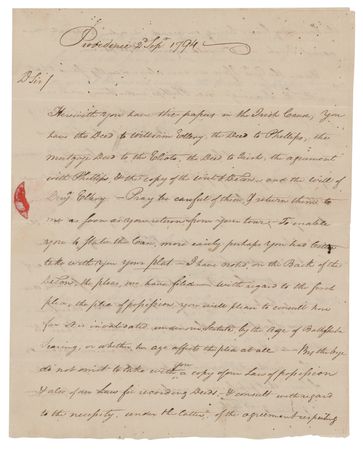 Providence 2d Sepr. 1794
D Sir/
Herewith you have the papers in the Irish Cause, You
have the Deed to William Ellery, the Deed to Phillips, the
mortgage Deed to the Eliots, the Deed to Irish, the agreement
with Phillips, & the copy of the and the Will of
Benj. Ellery – Pray be careful of them & return them to
me as soon as you return from your tour. To enable
you to State the Case, more easily perhaps you had better
take with you your plat – I have noted, on the Back of the
the pleas, we have filed – with regard to the first
plea, the plea of possession you will please to consult how
far it is invalidated under our statute, by the age of
leaving, or whether her age affects the plea at all – By the bye
do not omit to take with you a copy of our Law of possession
& also of our Laws for recording Deeds. & consult with regard
to the necessity, under the latter, of the agreement respecting